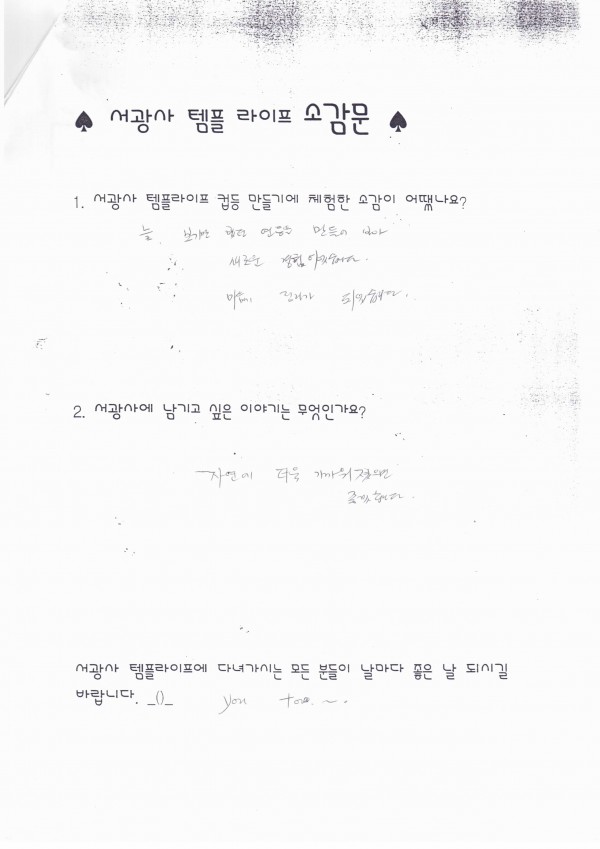 ♠ 서광사 템플 라이프 소감문 ♠
1. 서광사 템플라이프 컵등 만들기에 체험한 소감이 어땠나요?
늘 보기만 했던 연등을 만들어 보아
새로운 경험이었습니다.
마음이 정리가 되었습니다.
2. 서광사에 남기고 싶은 이야기는 무엇인가요?
자연이 더욱 가까워졌으면
좋겠습니다.
서광사 템플라이프에 다녀가시는 모든 분들이 날마다 좋은 날 되시길
바랍니다. _()_ you too. ~.